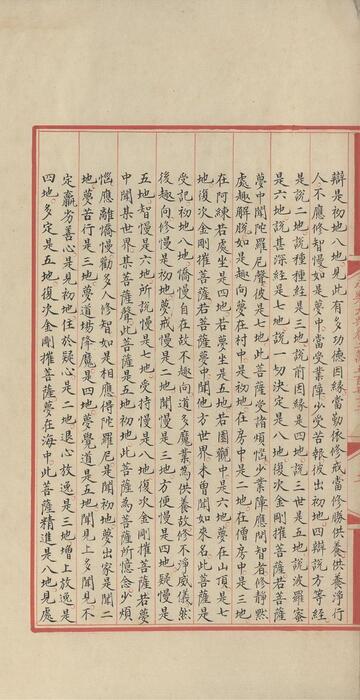 辯是初地八地見此有多功德因緣當勤依修戒當修勝供養供養淨行
人不應修智慢如是夢中當受業障少受苦報彼出初地四辯說方等經
是說二地說種種經是三地說前因緣是四地說三世是五地說波羅蜜
是六地說甚深經是七地說一切決定是八地復次金剛摧菩薩若菩薩
夢中聞陀羅尼聲彼是七地此菩薩受諸煩惱少業障應問智者修靜默
處趣解脫如是趣向夢在村中是初地在房中是二地在僧房中是三地
在阿練若處坐是四地若夢坐是五地若園觀中是六地夢在山頂是七
地復次金剛摧菩薩若菩薩夢中聞他方世界未曾聞如來名此菩薩是
受記初地八地憍慢自在故不趣向道多魔業為供養故修不淨威儀然
後趣向修慢是初地夢戒慢是二地聞慢是三地方便慢是四地疑慢是
五地智慢是六地所說慢是七地受持慢是八地復次金剛摧菩薩若夢
中聞某世界某菩薩聲此菩薩是五地初地此菩薩為菩薩所憶念少煩
惱應離憍慢勸多人修智如是相應得陀羅尼是聞初地夢出家是聞二
地夢苦行是三地夢道場降魔是四地夢覺道是五地聞見上多聞見不
定羸劣善心是見初地住於疑心是二地退心放逸是三地增上放逸是
四地多定是五地復次金剛摧菩薩夢在海中此菩薩精進是八地見處